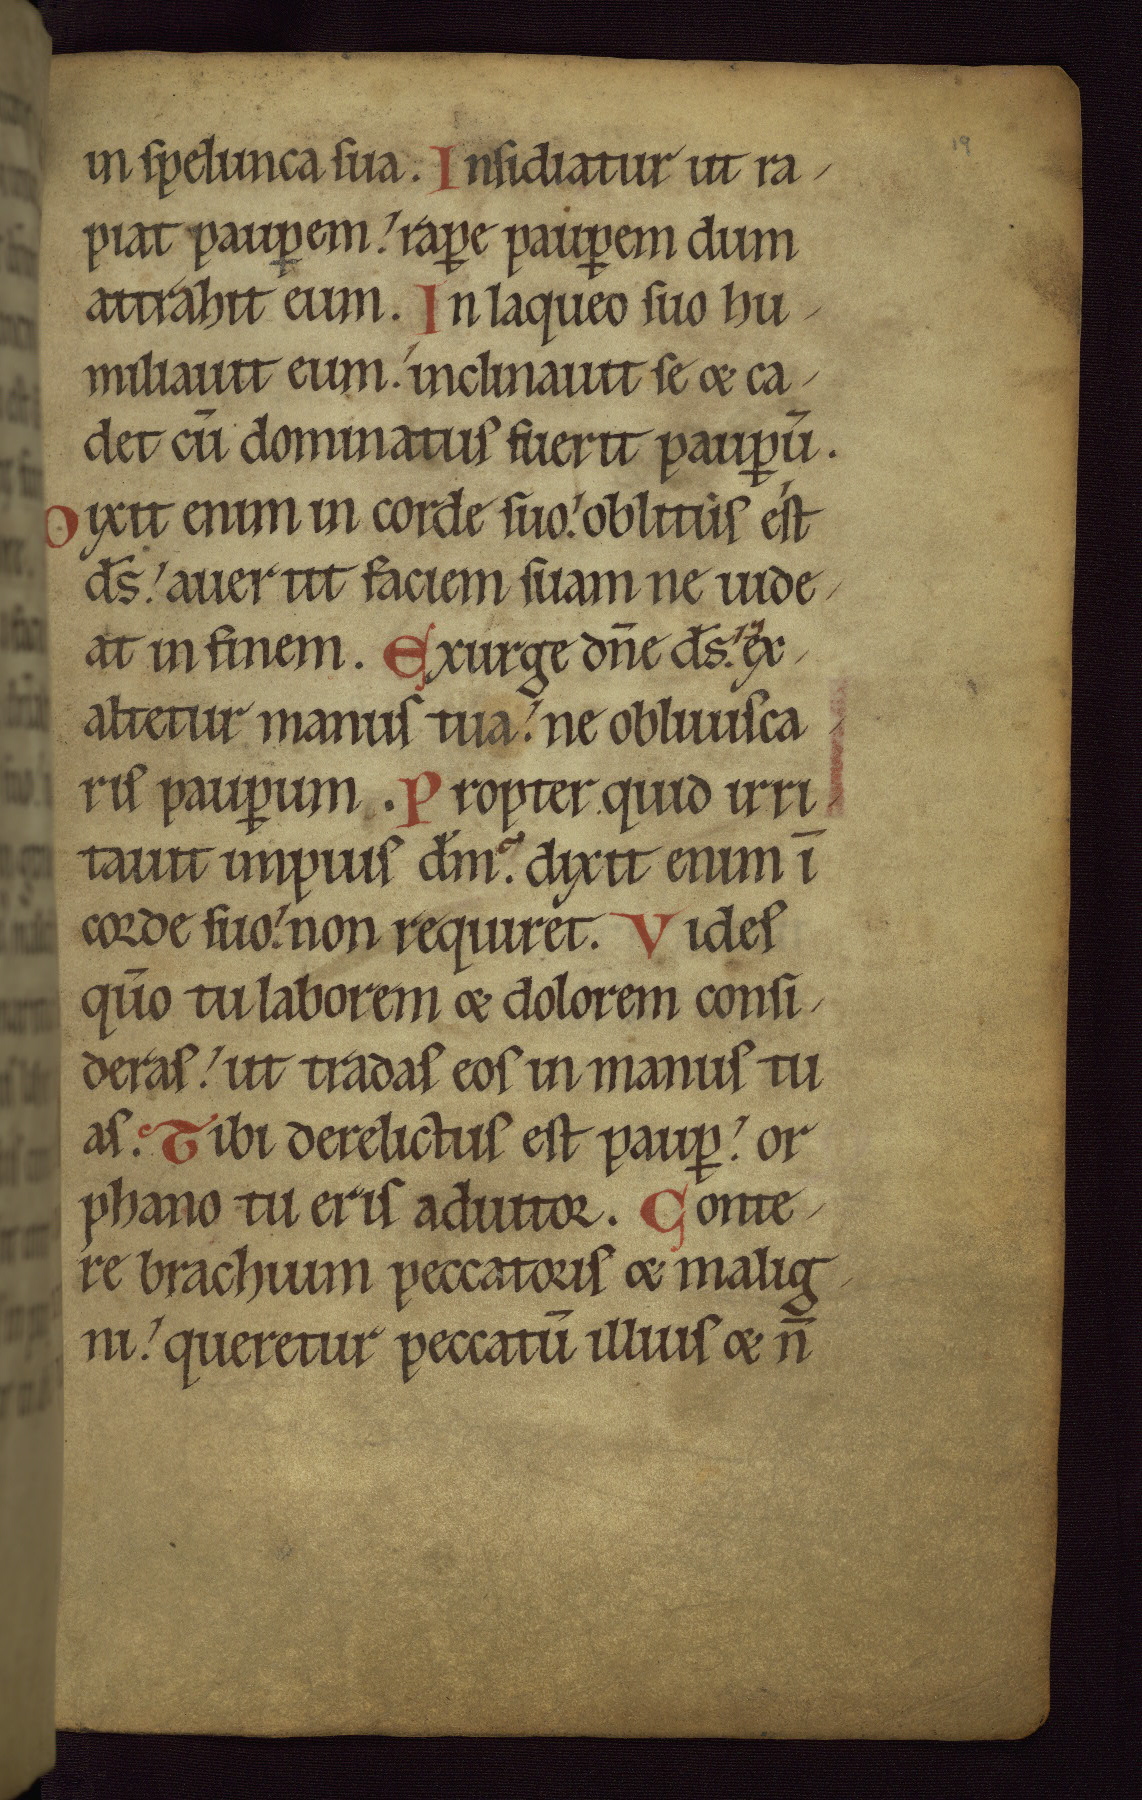 19
in spelunca sua. Insidiatur ut ra-
piat paup̱em! rap̱e paup̱em dum
attrahit eum. In laqueo suo hu-
miliauit eum! inclinauit se & ca-
det cū dominatus fuerit paup̱ū.
Dixit enim in corde suo! oblitus est
d̄s! auertit faciem suam ne uide-
at in finem. Exurge dn̄e d̄s! ex-
altetur manus tua! ne obliuisca-
ris paup̱um. Propter quid irri-
tauit impius dm̄? dixit enim ī
corde suo! non requiret. Vides
qūo tu laborem & dolorem consi-
deras! ut tradas eos in manus tu
as. Tibi derelictus est paup̱! or
phano tu eris adiutor. Conte-
re brachium peccatoris & malig-
ni! queretur peccatū illius & n̄